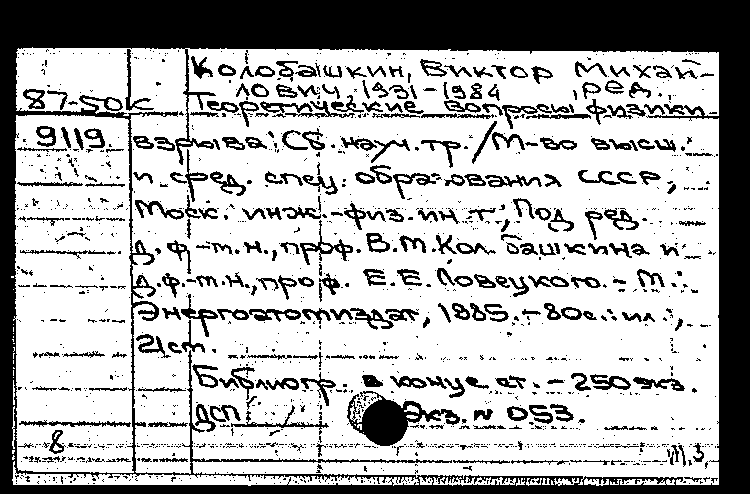 Колобашкин, Виктор Михай-
лович, 1931-1984, ред.,
87-50к Теоретические вопросы физики
9119 взрыва: Сб. науч. тр. / М-во высш.
и сред. спец. образования СССР,
Моск. инж.-физ. ин-т; Под ред.
д.ф.-м.н., проф. В.М. Колобашкина и
д.ф.-м.н., проф. Е.Е. Ловецкого. - М.:
Энергоатомиздат, 1985. - 80с.: ил.;
21см.
Библиогр. в конце ст. - 250 экз.
ДСП Экз. № 053.
8 М,3,